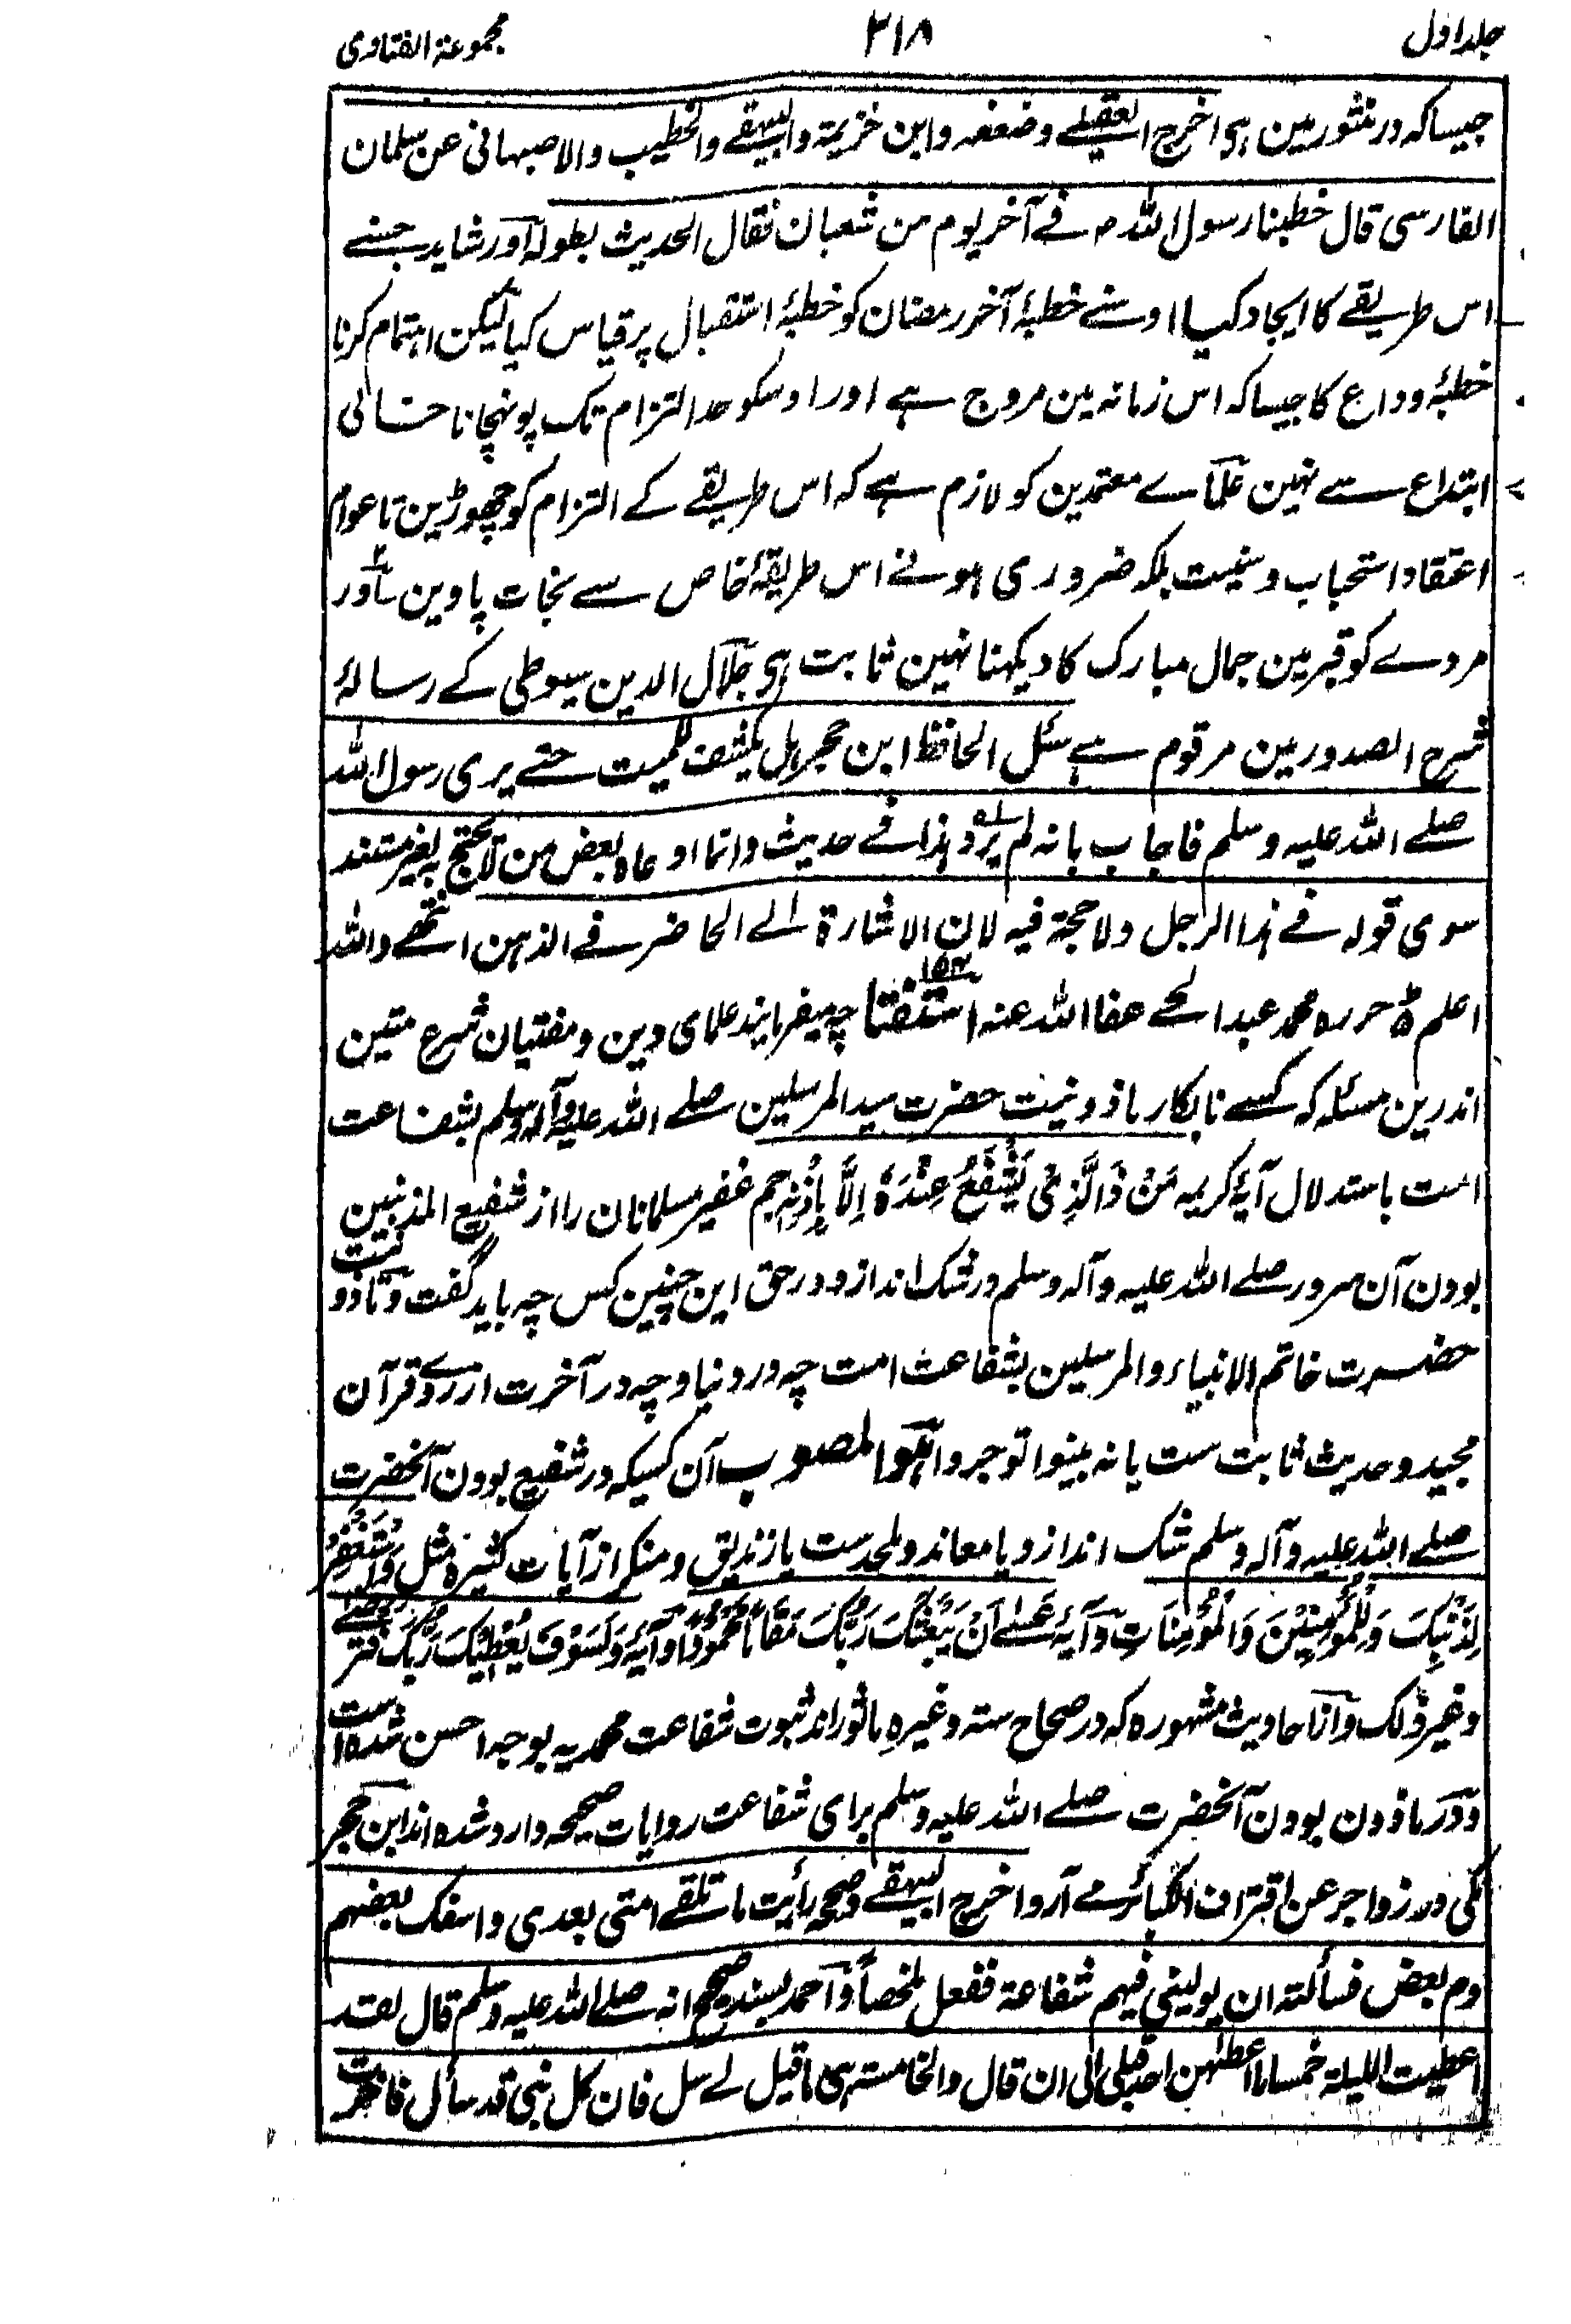 جلد اول
٣١٨
مجموعۃ الفتاوی
جیساکہ درمنثور مین ہی اخرج العقیلے وضعفہ وابن خزیمۃ والبیہقے والخطیب والاصبہانی عن سلمان
الفارسی قال خطبنا رسول اللہ ص فے آخر یوم من شعبان فقال الحدیث بطولہ اور شاید جسنے
اس طریقے کا ایجاد کیا اوسنے خطبۂ آخر رمضان کو خطبۂ استقبال پر قیاس کیا لیکن اہتمام کرنا
خطبۂ وداع کا جیساکہ اس زمانہ مین مروج ہے اور اوسکو حد التزام تک پونہچانا خالی
ابتداع سے نہین علماے معتمدین کو لازم ہے کہ اس طریقے کے التزام کو چھوڑین تا عوام
اعتقاد استحباب وسنیت بلکہ ضروری ہونے اس طریقۂ خاص سے نجات پاوین ۲ اور
مردے کو قبر مین جمال مبارک کا دیکہنا نہین ثابت ہی جلال الدین سیوطی کے رسالۂ
شرح الصدور مین مرقوم ہے سئل الحافظ ابن حجر ہل یکشف للمیت حتے یری رسول اللہ
صلے اللہ علیہ وسلم فاجاب بانہ لم یرد ہذا فے حدیث وانما ادعاہ بعض من لا یحتج بہ بغیر مستند
سوی قولہ فے ہذا الرجل ولا حجۃ فیہ لان الاشارۃ الے الحاضر فے الذہن انتہے واللہ
اعلم حررہ محمد عبد الحے عفا اللہ عنہ استفتا چہ میفرمایند علمای دین ومفتیان شرع متین
اندرین مسئلہ کہ کسے نابکار ماذونیت حضرت سید المرسلین صلے اللہ علیہ وآلہ وسلم بشفاعت
امت باستدلال آیۂ کریمہ مَنْ ذَا الَّذِیْ یَشْفَعُ عِنْدَہٗ اِلَّا بِاِذْنِہٖ جم غفیر مسلمانان را از شفیع المذنبین
بودن آن سرور صلے اللہ علیہ وآلہ وسلم در شک اندازد در حق این چنین کس چہ باید گفت وماذونیت
حضرت خاتم الانبیاء والمرسلین بشفاعت امت چہ در دنیا وچہ در آخرت از روے قرآن
مجید وحدیث ثابت ست یا نہ بینوا توجروا ہو المصوب آن کسیکہ در شفیع بودن آنحضرت
صلے اللہ علیہ وآلہ وسلم شک اندازد یا معاند وملحدست یا زندیق ومنکر از آیات کثیرہ مثل وَاسْتَغْفِرْ
لِذَنْبِکَ وَلِلْمُؤْمِنِیْنَ وَالْمُؤْمِنَاتِ وآیۂ عَسٰے اَنْ یَّبْعَثَکَ رَبُّکَ مَقَامًا مَّحْمُوْدًا وآیۂ وَلَسَوْفَ یُعْطِیْکَ رَبُّکَ فَتَرْضٰے
وغیر ذلک واز احادیث مشہورہ کہ در صحاح ستہ وغیرہ ماثور اند ثبوت شفاعت محمدیہ بوجہ احسن شدہ است
ودر ماذون بودن آنحضرت صلے اللہ علیہ وسلم برای شفاعت روایات صحیحہ وارد شدہ اند ابن حجر
مکی در زواجر عن اقتراف الکبائر مے آرد اخرج البیہقے وصححہ رأیت ما تلقے امتی بعدی واسفک بعضہم
دم بعض فسألتہ ان یولینی فیہم شفاعۃ ففعل ملخصاً واحمد بسند صحیح انہ صلے اللہ علیہ وسلم قال لقد
اعطیت اللیلۃ خمسا ما اعطہن احد قبلی الی ان قال والخامستہ ہی ما قیل لے سل فان کل نبی قد سأل فاخرت